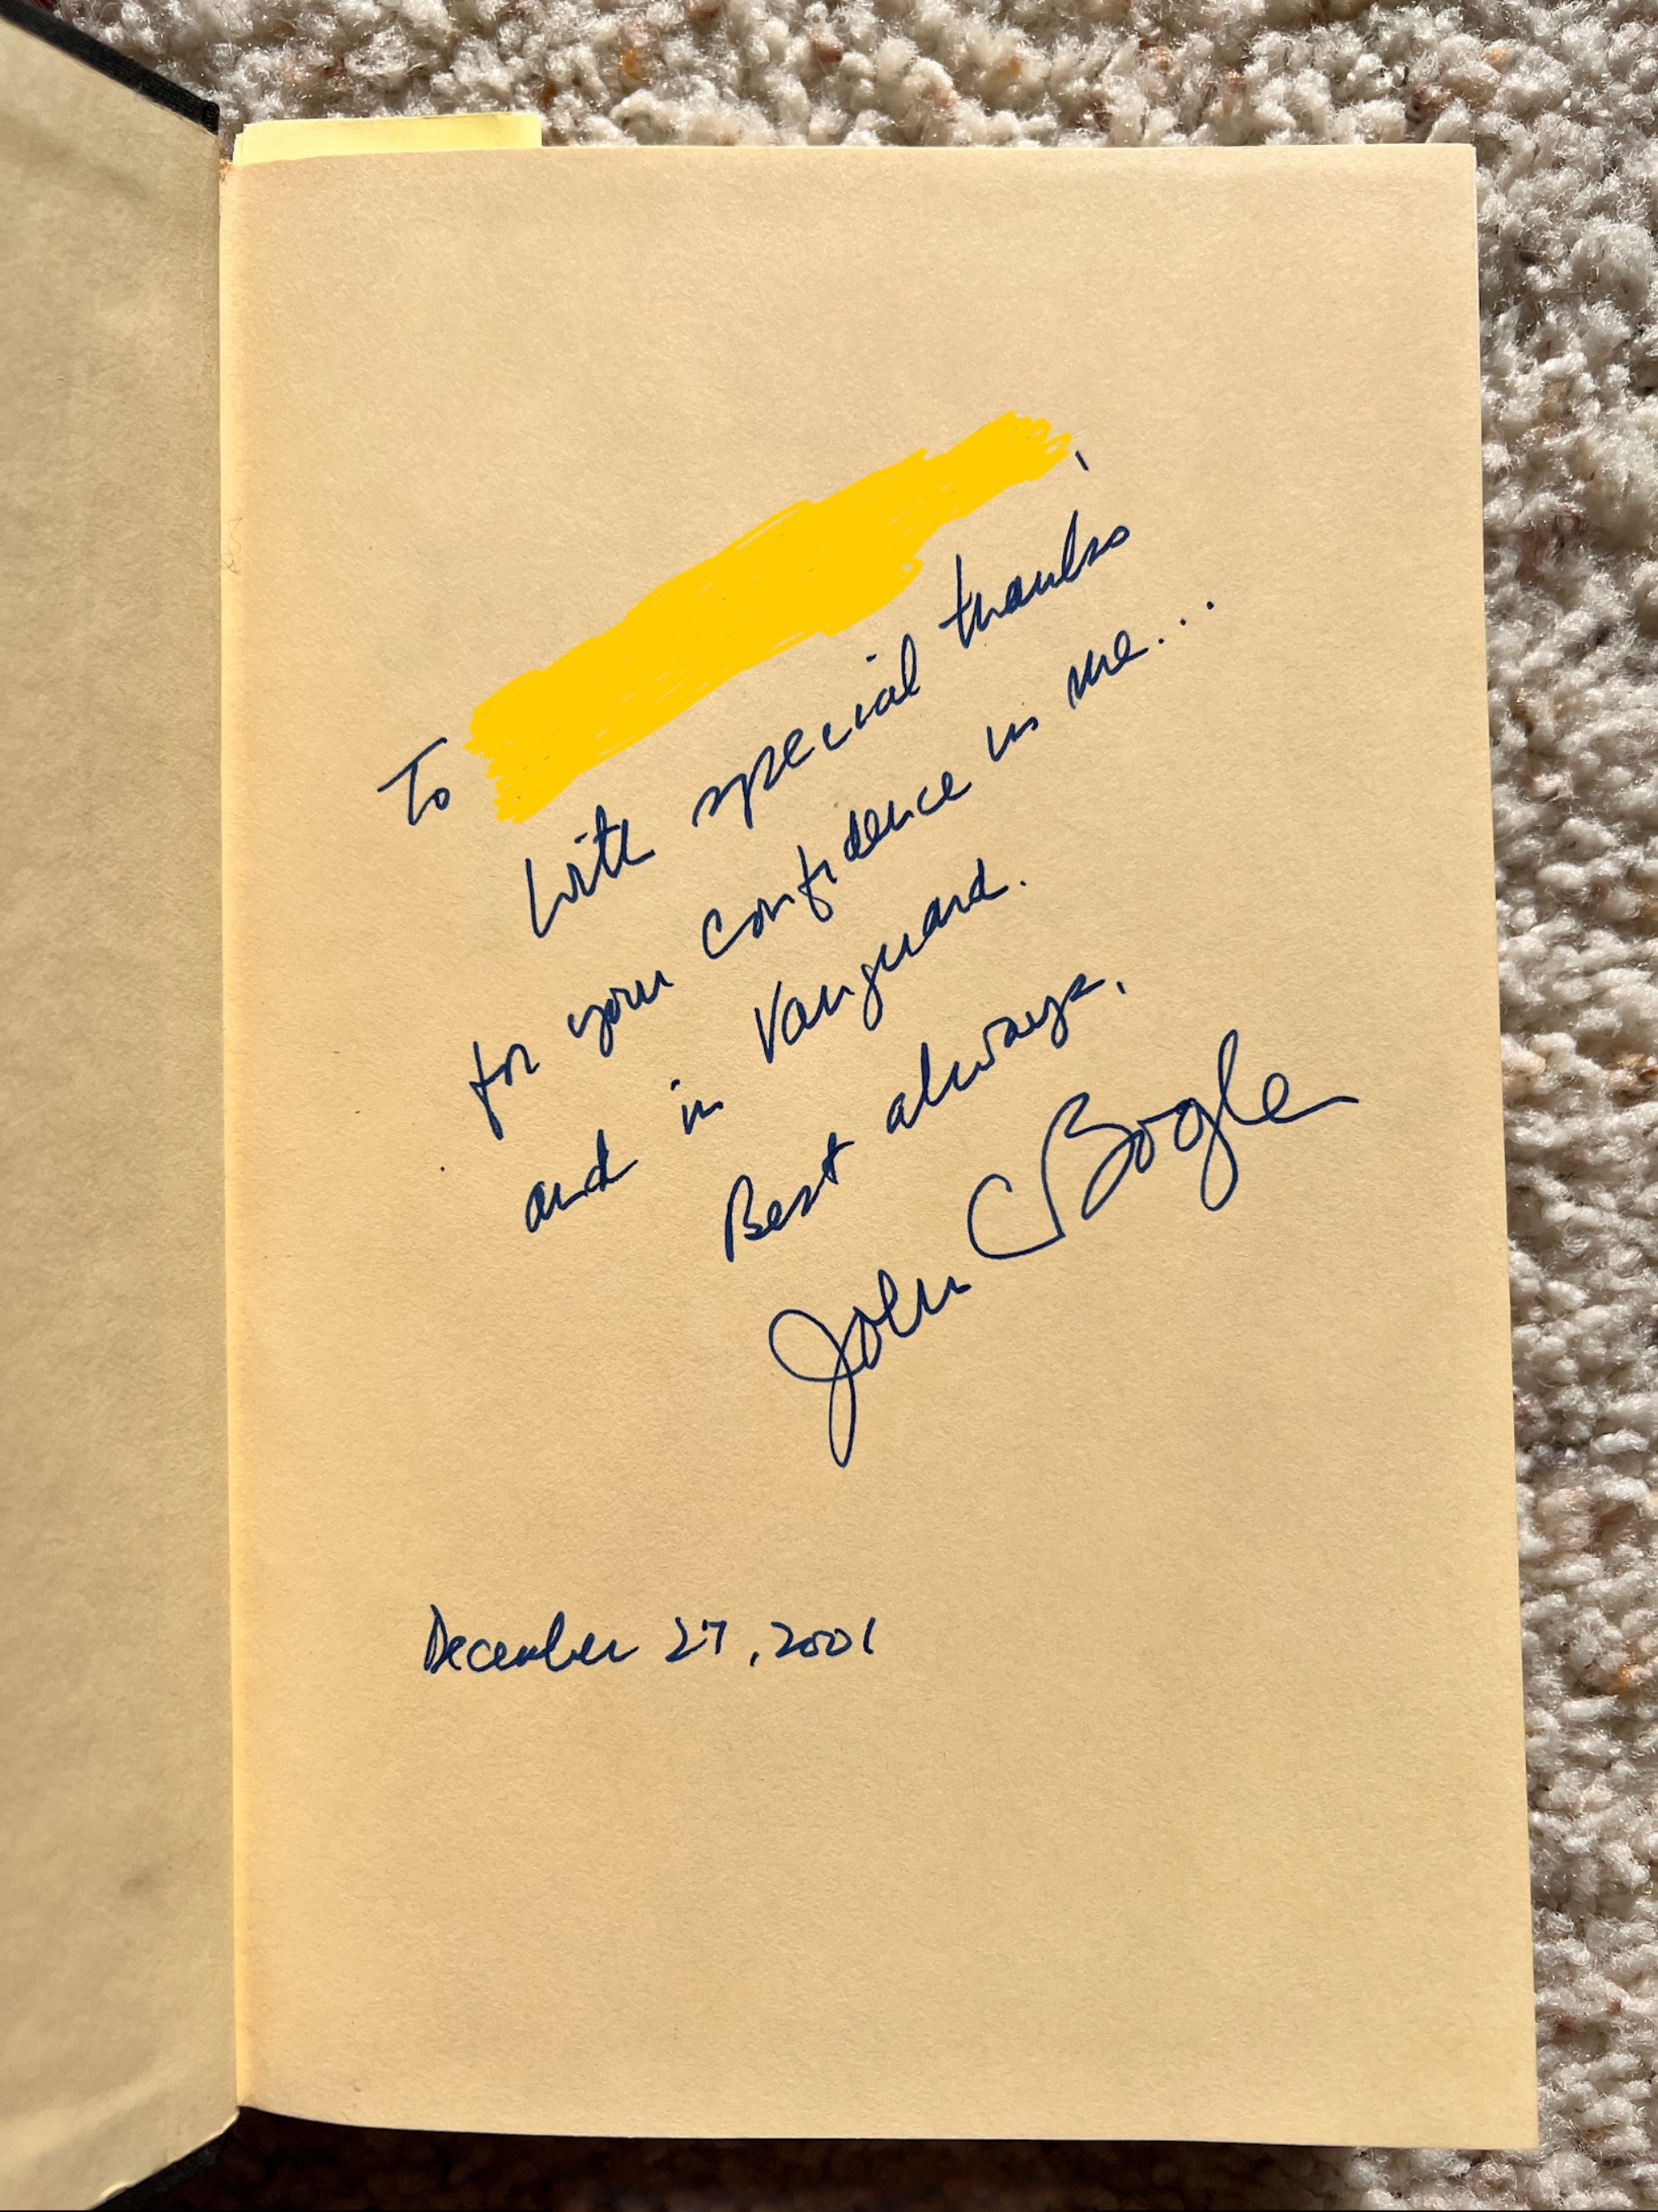 To ,
With special thanks
for your confidence in me...
and in Vanguard.
Best always,
John C Bogle
December 27, 2001